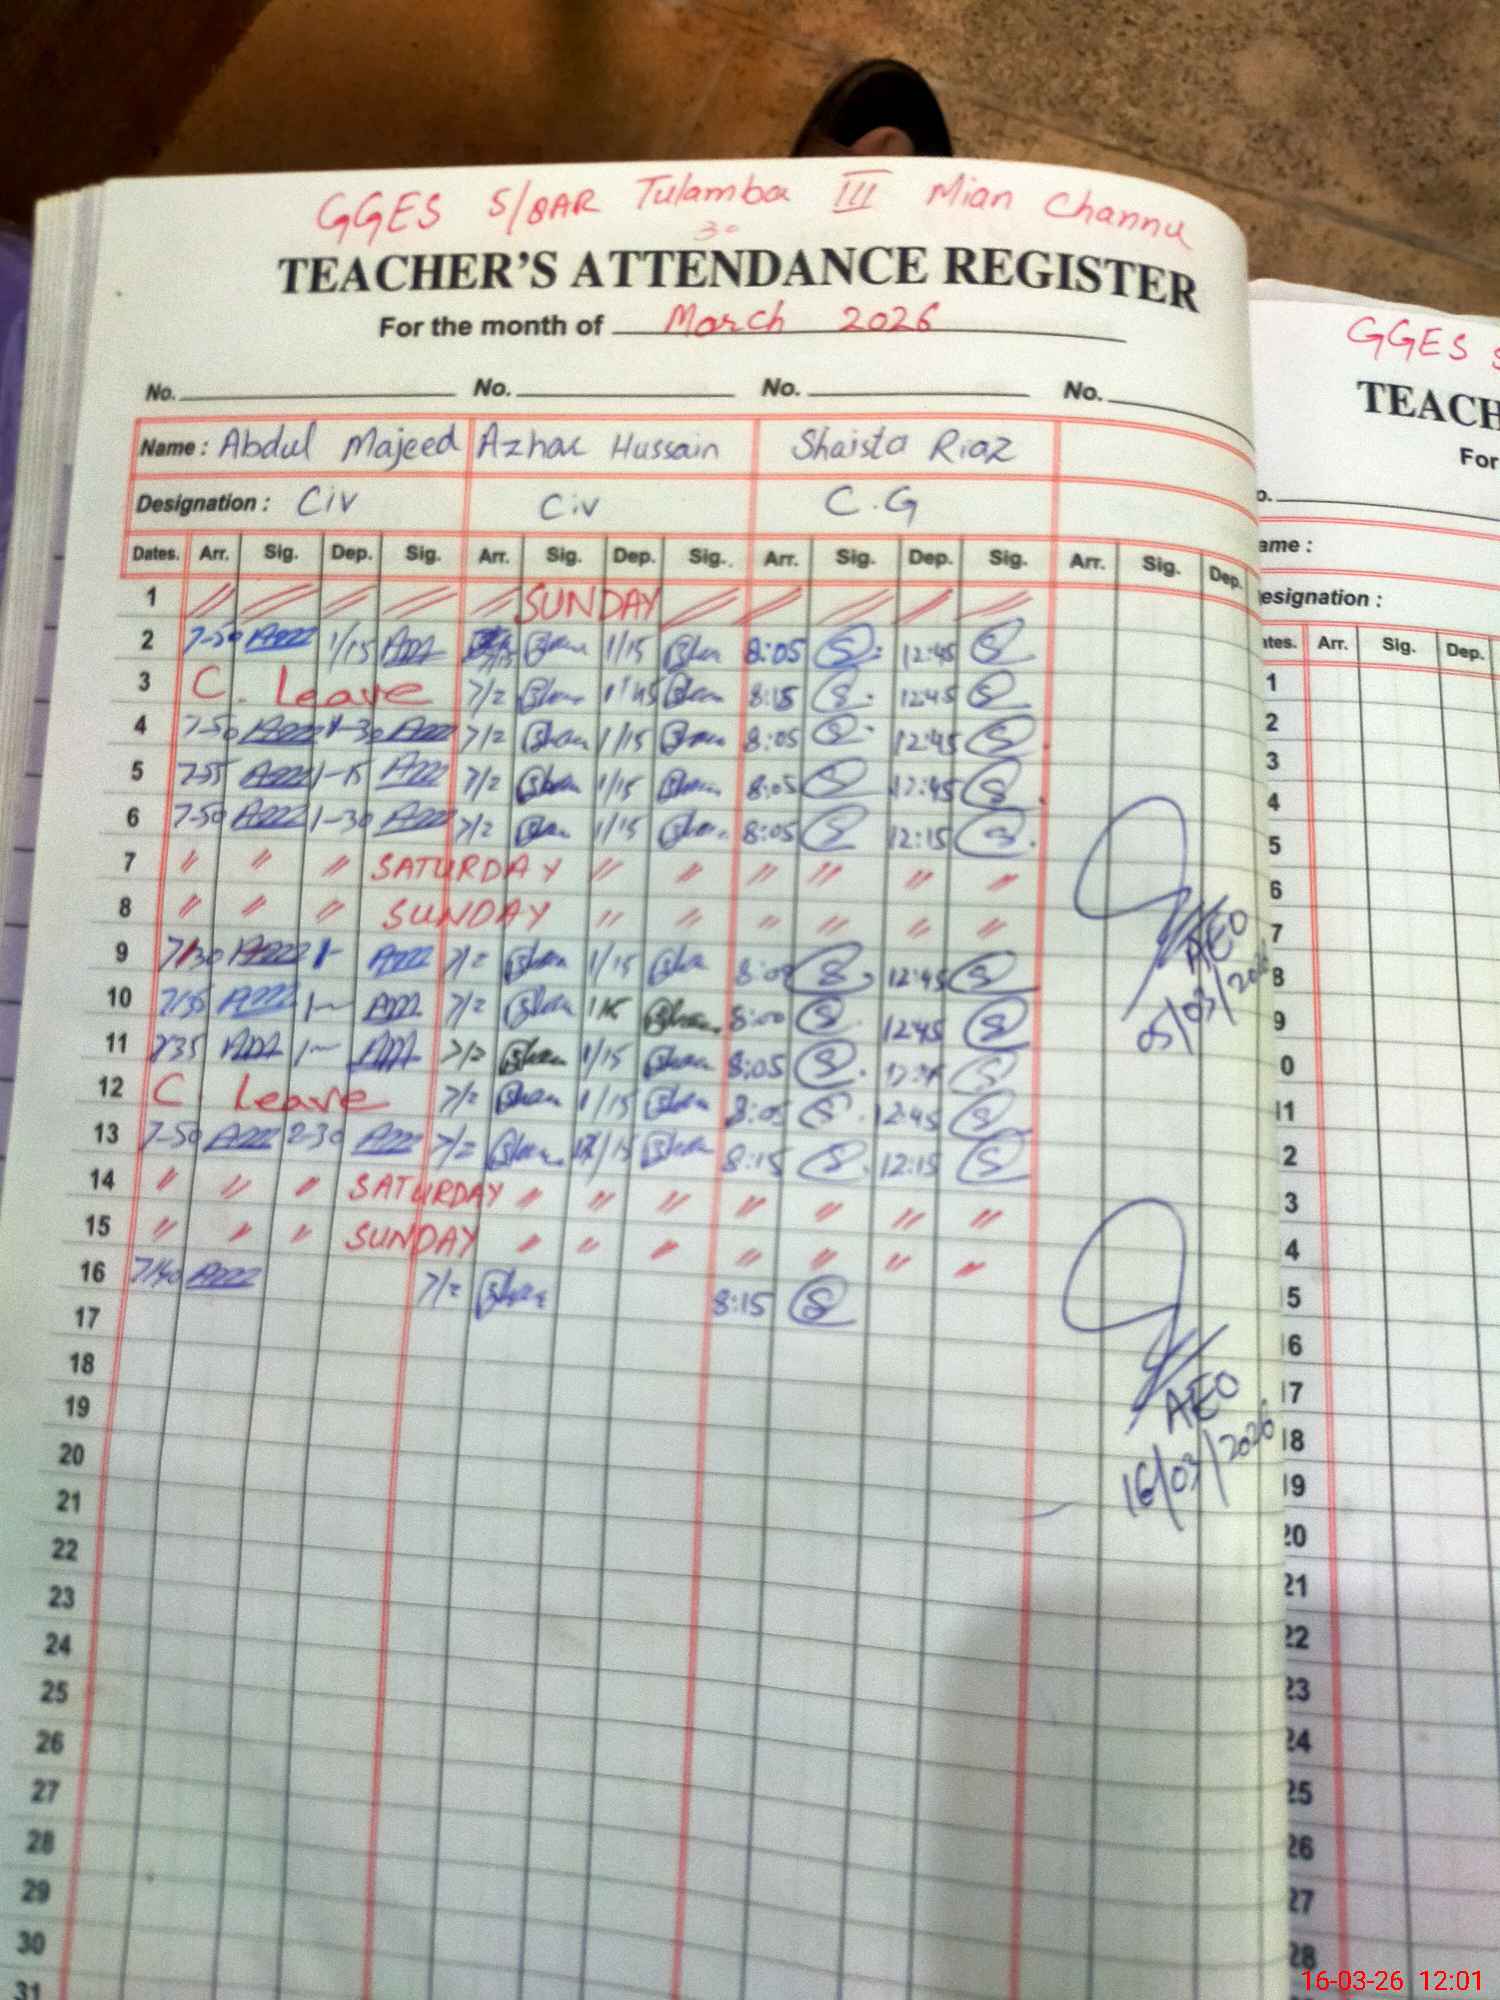 GGES S/BAR Tulamba III Mian Channu
TEACHER'S ATTENDANCE REGISTER
For the month of March 2026
No. No. No. No.
Name : Abdul Majeed Azhar Hussain Shaista Riaz
Designation : Civ Civ C.G
Dates. Arr. Sig. Dep. Sig. Arr. Sig. Dep. Sig. Arr. Sig. Dep. Sig. Arr. Sig. Dep.
1 SUNDAY
2 7-50 1/15 1/15 8:05 12:45
3 C. Leave 7/2 8:15 12:45
4 7-50 1-30 7/2 1/15 8:05 12:45
5 7-55 1-15 7/2 1/15 8:05 12:45
6 7-50 1-30 7/2 1/15 8:05 12:15
7 " " " SATURDAY " " " " " "
8 " " " SUNDAY " " " " " "
9 7/30 1- 7/2 1/15 12:45
10 7/35 7/2 8:00 12:45
11 7/2 1/15 8:05
12 C. Leave 7/2 1/15 8:05 12:45
13 7-50 2-30 7/2 8:15 12:15
14 " " " SATURDAY " " " " " " "
15 " " " SUNDAY " " " " " " "
16 7/40 7/2 8:15
17
18
19
20
21
22
23
24
25
26
27
28
29
30
31
AEO
05/03/2026
AEO
16/03/2026
GGES
TEACH
For
o.
ame :
esignation :
ates. Arr. Sig. Dep.
1
2
3
4
5
6
7
8
9
0
11
2
3
4
5
6
17
18
19
20
21
22
23
24
25
26
27
28
16-03-26 12:01